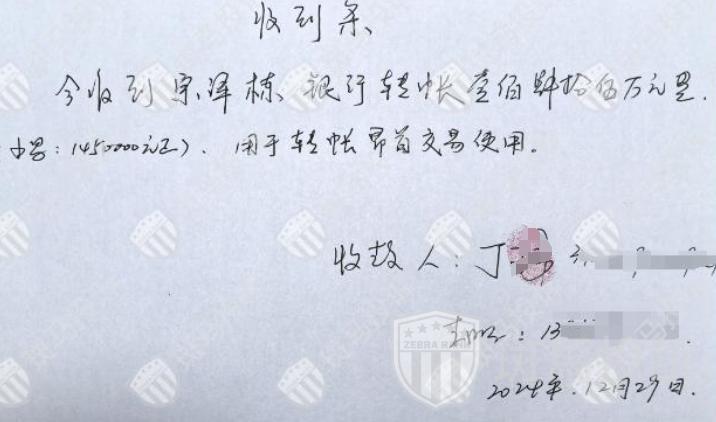 收到条
今收到宗泽栋、银行转帐壹佰肆拾伍万元
小写：1450000元正）、用于转帐昂首交易使用。
收款人：丁
：13
ZEBRA RANK
2024年.12月29日.